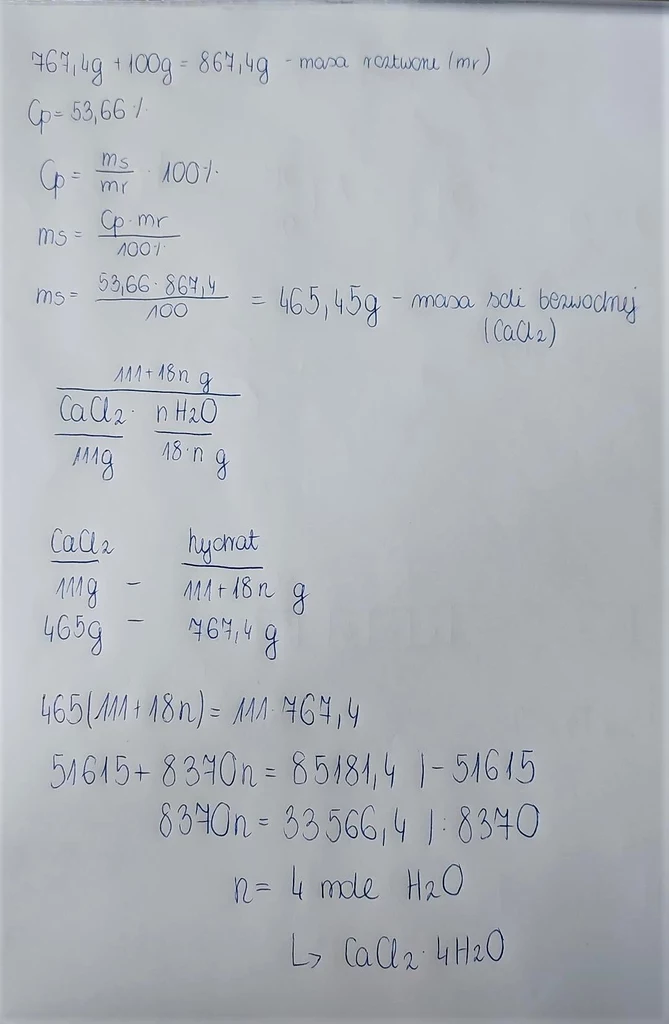 767,4g + 100g = 867,4g - masa roztworu (mr)
Cp = 53,66 %
Cp = ms/mr · 100%
ms = Cp · mr/100%
ms = 53,66 · 867,4/100 = 465,45g - masa soli bezwodnej
(CaCl2)
111 + 18n g
CaCl2 · nH2O
111g 18·n g
CaCl2 hydrat
111g - 111 + 18n g
465g - 767,4 g
465(111 + 18n) = 111 · 767,4
51615 + 8370n = 85181,4 |- 51615
8370n = 33566,4 |: 8370
n = 4 mole H2O
↳ CaCl2 · 4H2O